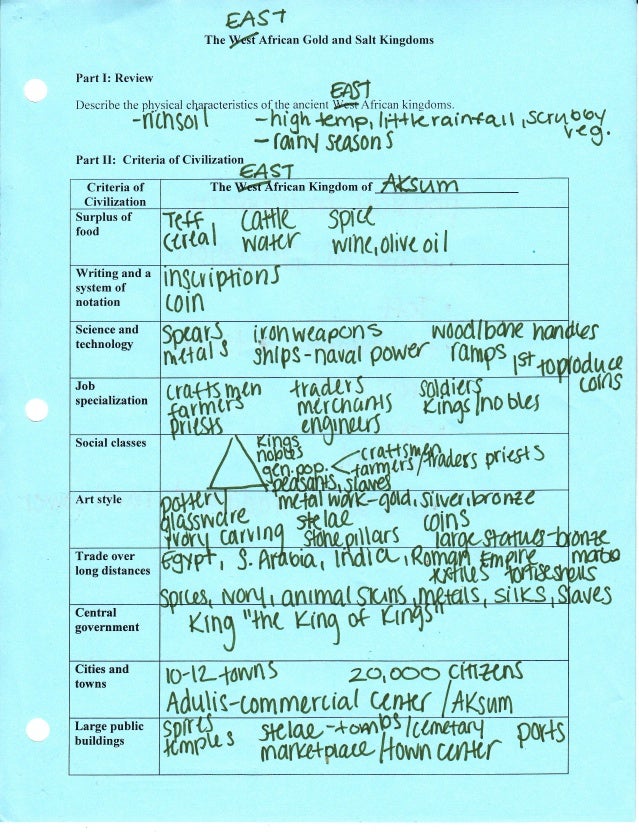 EAST
The West African Gold and Salt Kingdoms
Part I: Review
EAST
Describe the physical characteristics of the ancient West African kingdoms.
-rich soil -high temp, little rainfall, scrubby veg.
- rainy seasons
Part II: Criteria of Civilization
EAST
Criteria of Civilization The West African Kingdom of AKsum
Surplus of food
Teff cattle spice
cereal water wine, olive oil
Writing and a system of notation
inscriptions
coin
Science and technology
Spears iron weapons wood/bone handles
metals ships-naval power ramps 1st to produce coins
Job specialization
craftsmen traders soldiers
farmers merchants Kings/nobles
priests engineers
Social classes
Kings
nobles
gen. pop. < craftsmen
farmers/traders priests
peasants, slaves
Art style
pottery metal work-gold, silver, bronze
glassware stelae coins
Ivory carving stone pillars large statues-bronze
Trade over long distances
Egypt, S. Arabia, India, Roman Empire
textiles tortise shells
Spices, Ivory, animal skins, metals, silks, Slaves
Central government
King "the King of Kings"
Cities and towns
10-12 towns 20,000 citizens
Adulis-commercial center / AKsum
Large public buildings
spires stelae-tombs/cemetary ports
temples marketplace/town center